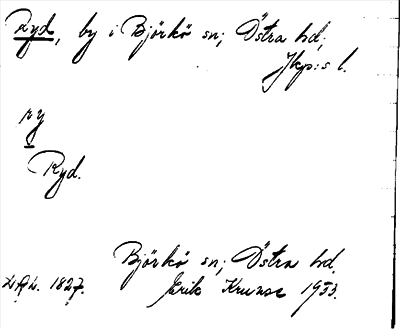 Ryd, by i Björkö sn; Östra hd;
Jkp:s l.
ry
Ryd.
Björkö sn; Östra hd.
1827. Erik 1933.